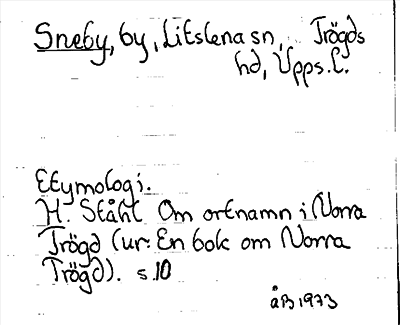 Sneby, by, Litslena sn, Trögds
hd, Upps. l.
Etymologi.
H. Ståhl Om ortnamn i Norra
Trögd (ur: En bok om Norra
Trögd). s. 10
åB 1973